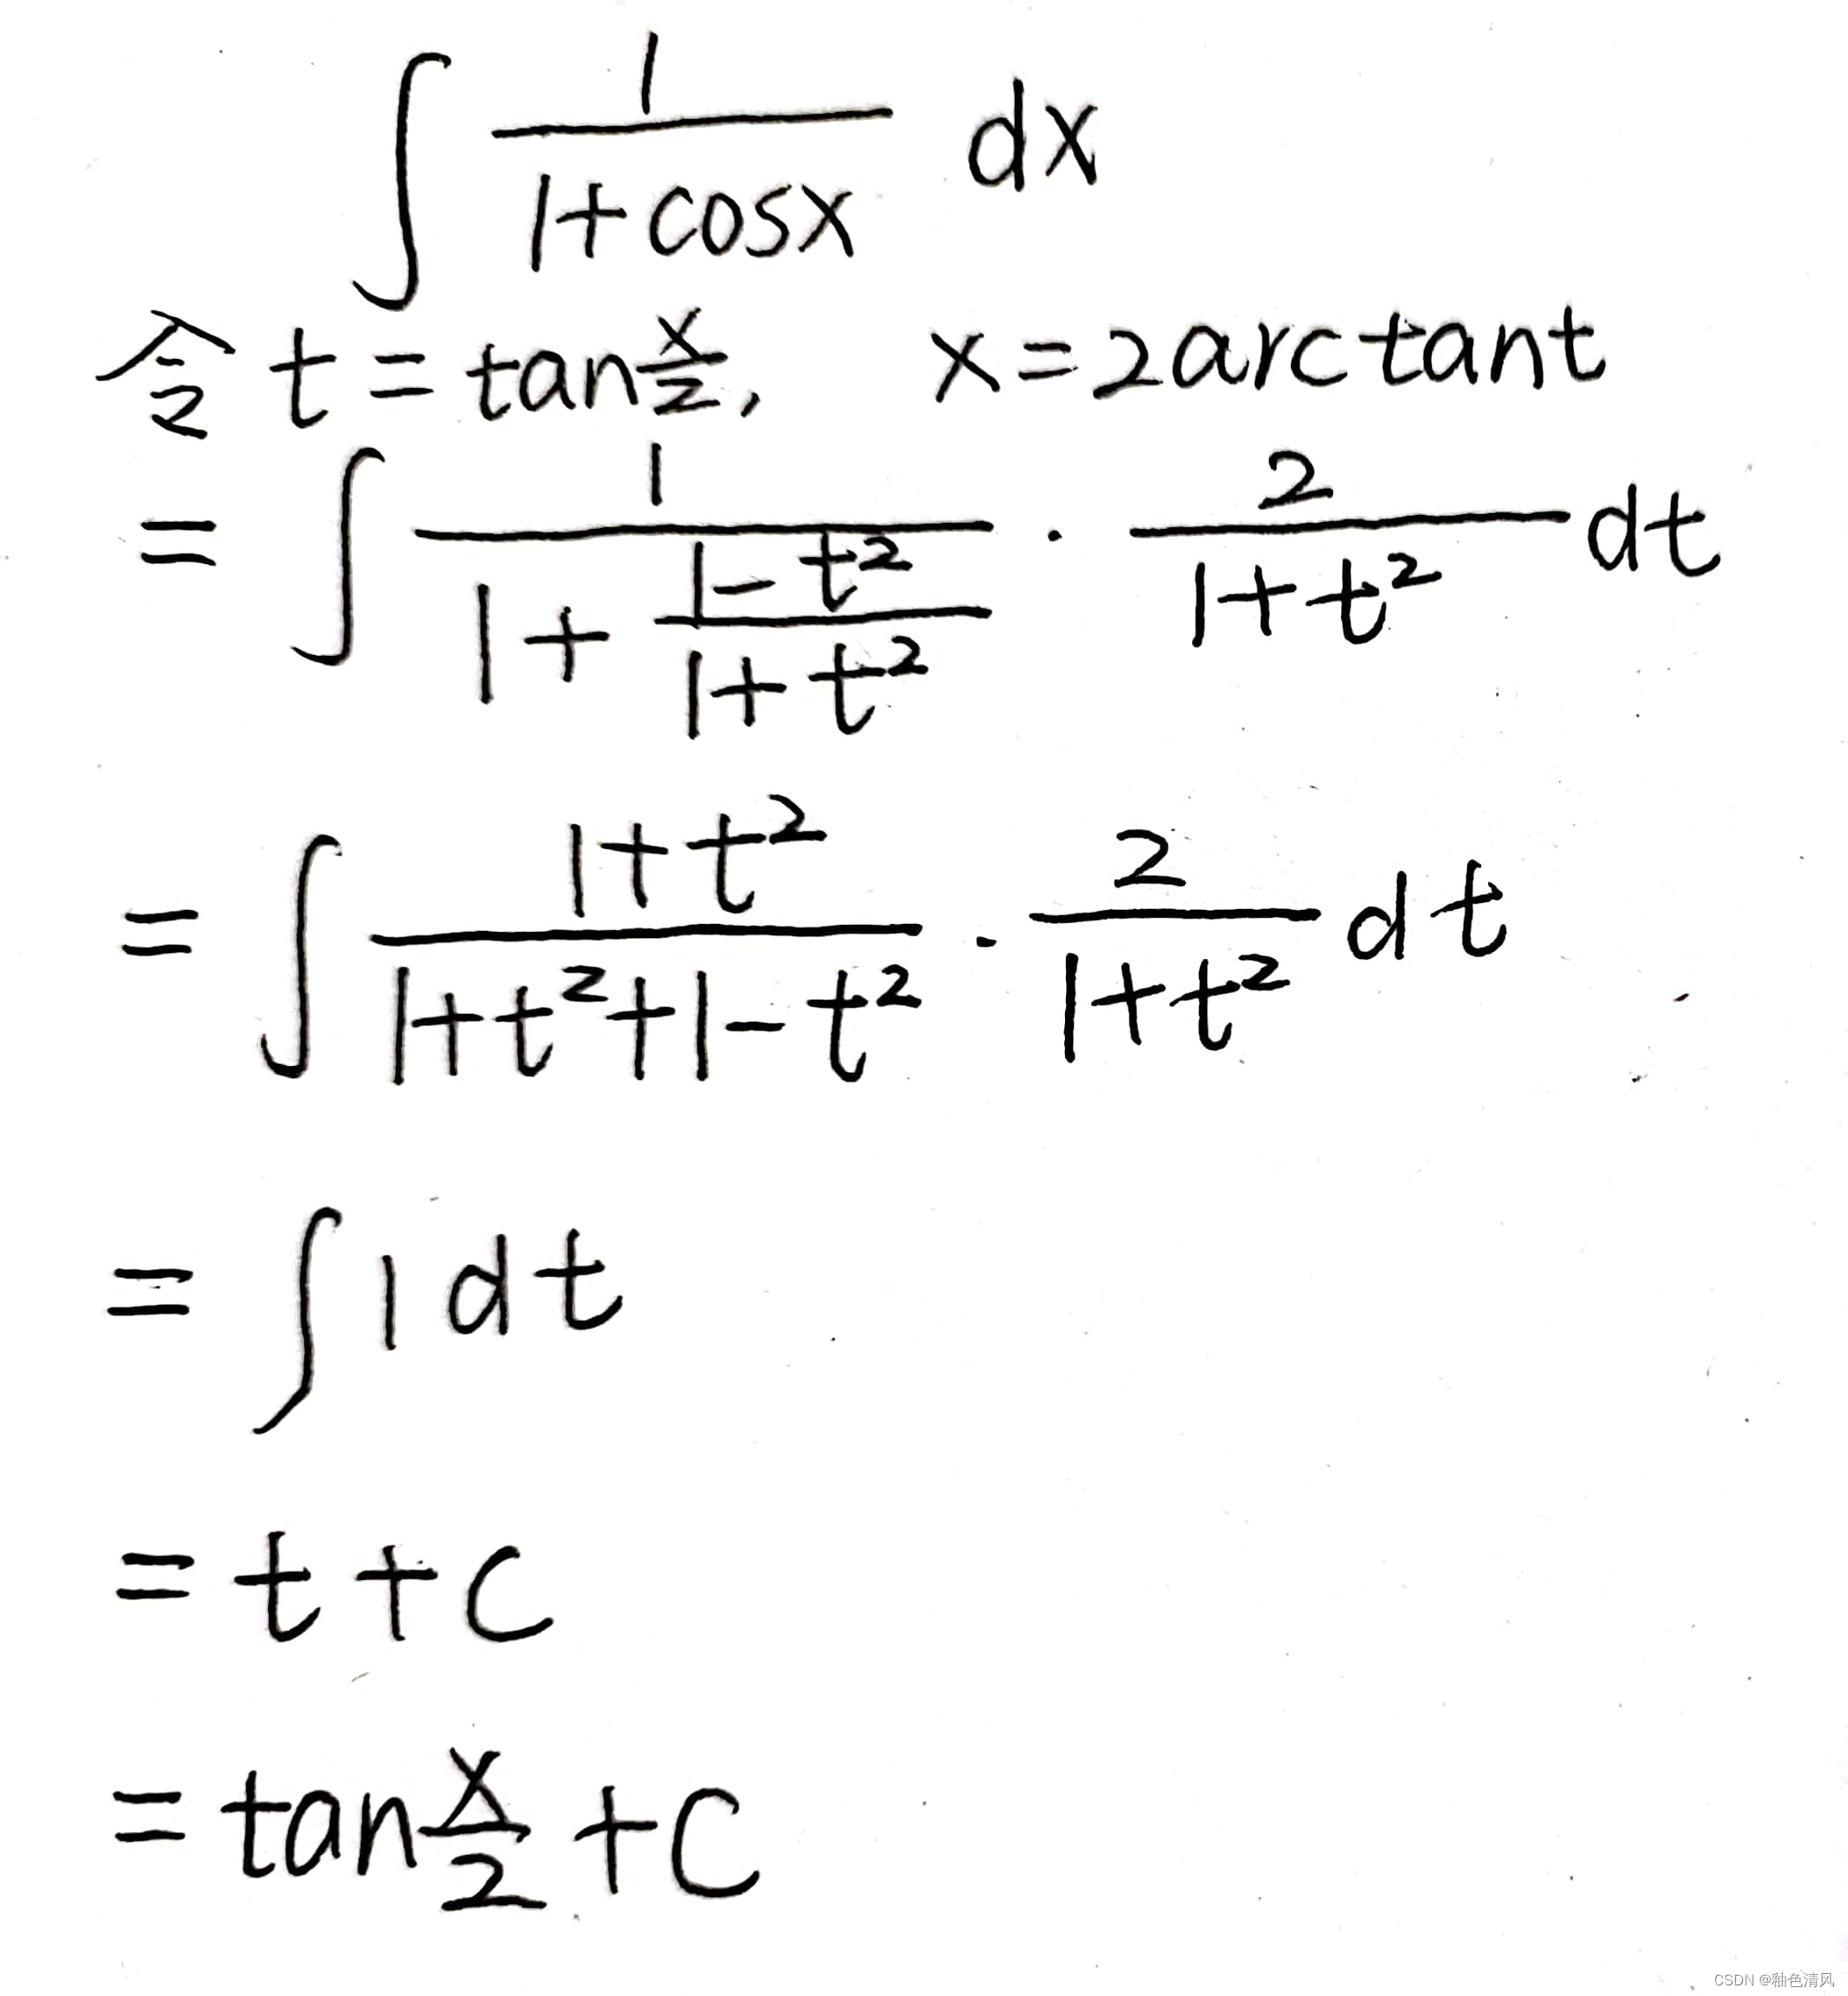 ∫ 1/(1+cosx) dx
令 t = tan x/2, x = 2arctant
= ∫ 1/(1+(1-t²)/(1+t²)) · 2/(1+t²) dt
= ∫ (1+t²)/(1+t²+1-t²) · 2/(1+t²) dt
= ∫ 1 dt
= t + C
= tan x/2 + C
CSDN @釉色清风